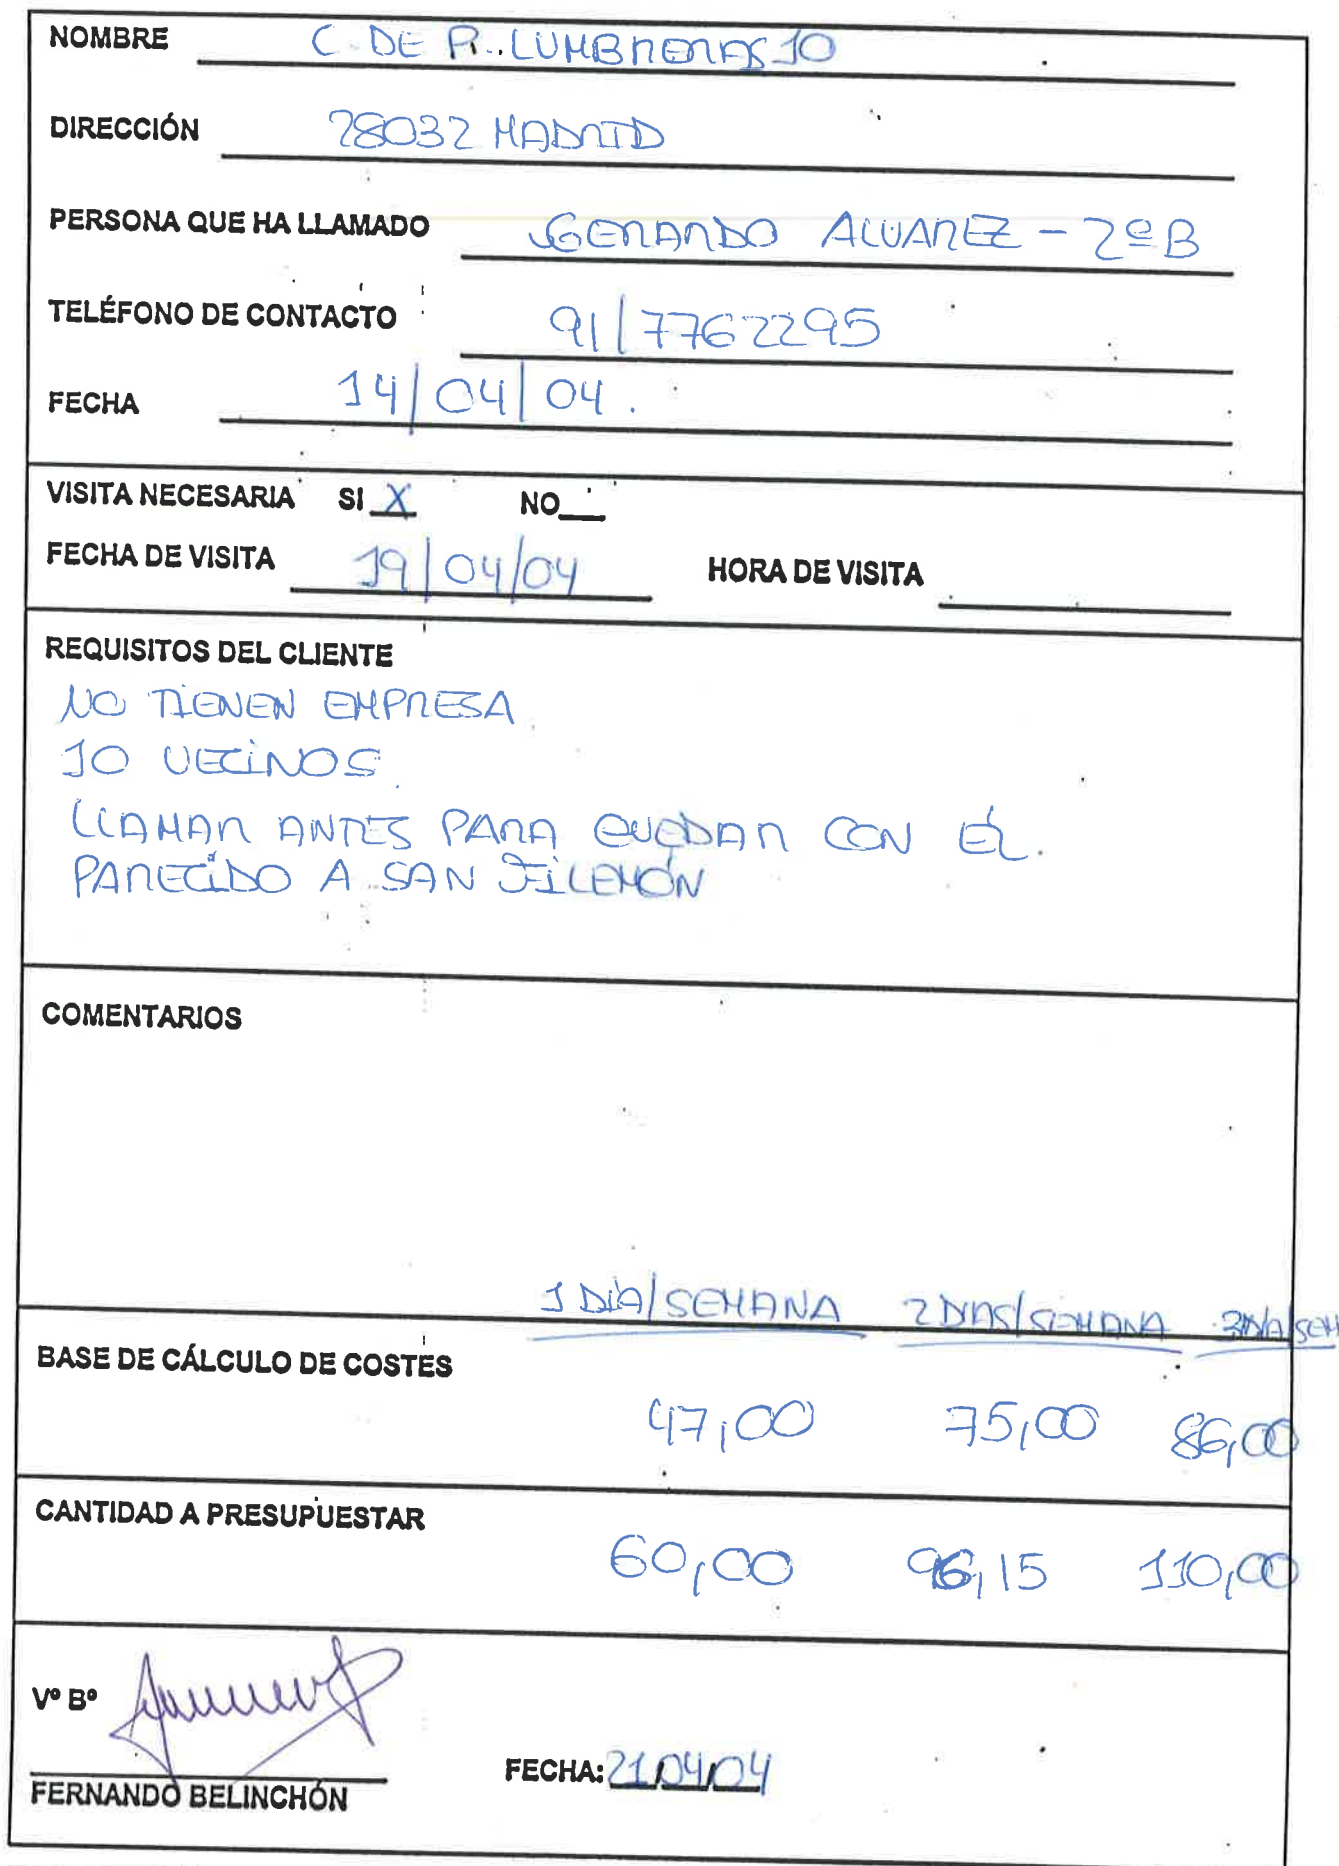 NOMBRE C. DE P. LUMBRERAS 10
DIRECCIÓN 28032 MADRID
PERSONA QUE HA LLAMADO GERARDO ALVAREZ - 2º B
TELÉFONO DE CONTACTO 91/7762295
FECHA 14/04/04.
VISITA NECESARIA SI X NO
FECHA DE VISITA 19/04/04 HORA DE VISITA
REQUISITOS DEL CLIENTE
NO TIENEN EMPRESA
10 VECINOS
LLAMAR ANTES PARA QUEDAR CON ÉL.
PARECIDO A SAN FILEMÓN
COMENTARIOS
1 DÍA/SEMANA 2 DIAS/SEMANA 3 DIA/SEM
BASE DE CÁLCULO DE COSTES
47,00 75,00 86,00
CANTIDAD A PRESUPUESTAR
60,00 96,15 110,00
Vº Bº
FERNANDO BELINCHÓN
FECHA: 21/04/04